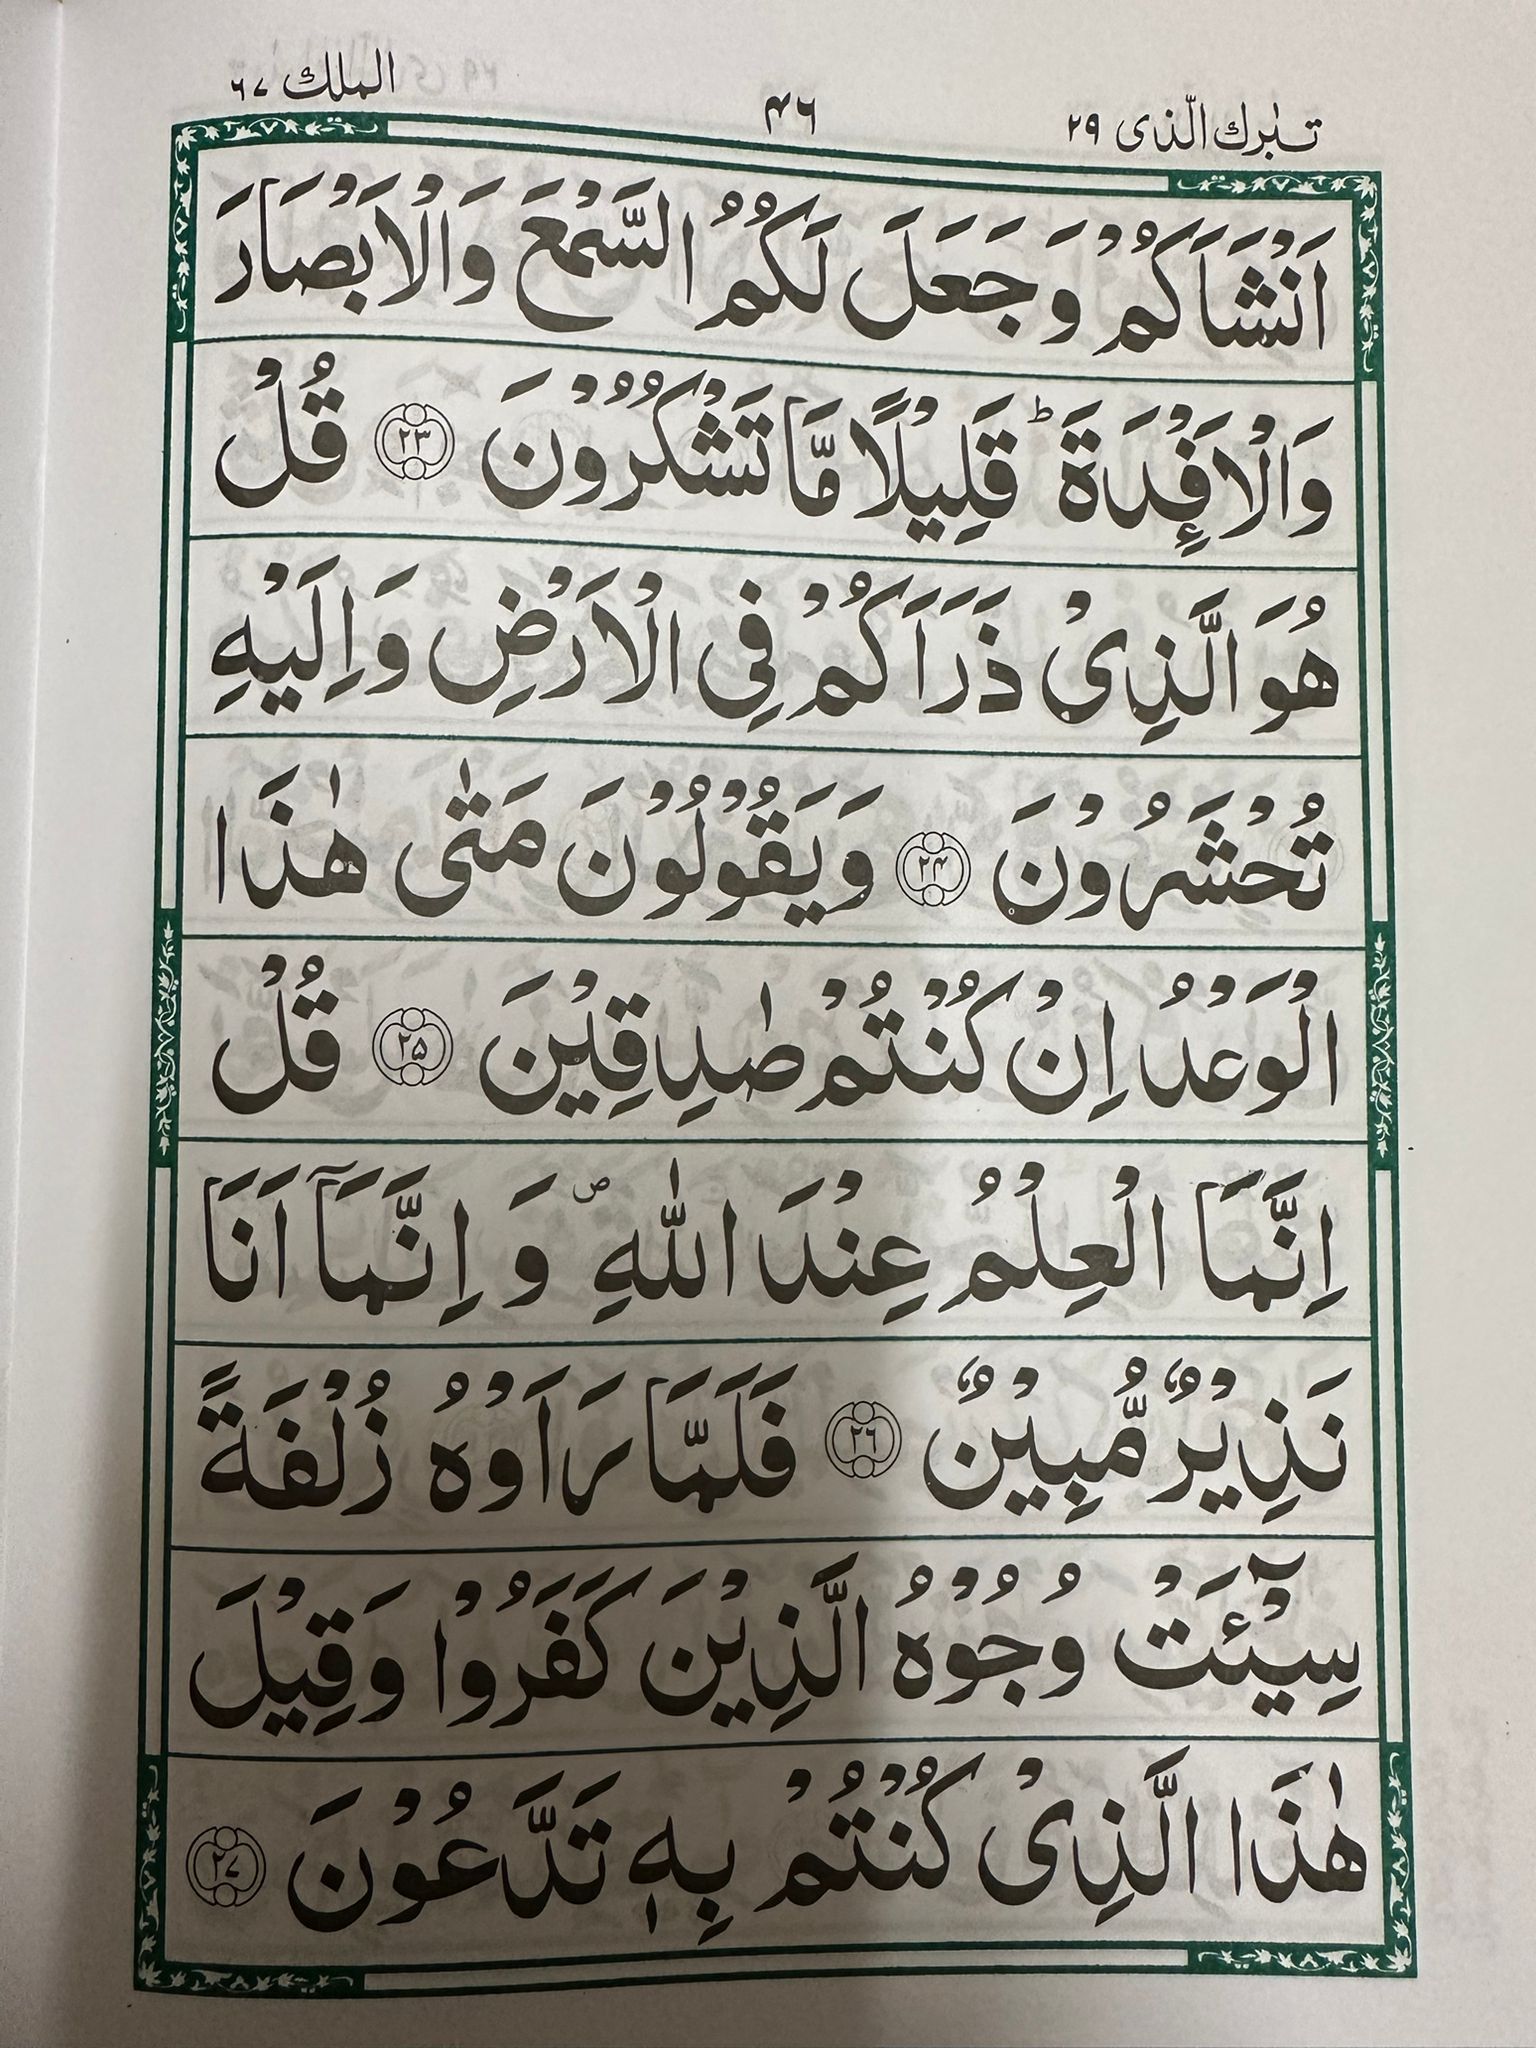 تبٰرك الّذی ٢٩
٤٦
الملك ٦٧
اَنْشَاَكُمْ وَجَعَلَ لَكُمُ السَّمْعَ وَالْاَبْصَارَ
وَالْاَفْـِٕدَةَ ؕ قَلِيْلًا مَّا تَشْكُرُوْنَ ﴿٢٣﴾ قُلْ
هُوَ الَّذِىْ ذَرَاَكُمْ فِى الْاَرْضِ وَاِلَيْهِ
تُحْشَرُوْنَ ﴿٢٤﴾ وَيَقُوْلُوْنَ مَتٰى هٰذَا
الْوَعْدُ اِنْ كُنْتُمْ صٰدِقِيْنَ ﴿٢٥﴾ قُلْ
اِنَّمَا الْعِلْمُ عِنْدَ اللّٰهِ ۖ وَ اِنَّمَاۤ اَنَا
نَذِيْرٌ مُّبِيْنٌ ﴿٢٦﴾ فَلَمَّا رَاَوْهُ زُلْفَةً
سِيْٓـَٔتْ وُجُوْهُ الَّذِيْنَ كَفَرُوْا وَقِيْلَ
هٰذَا الَّذِىْ كُنْتُمْ بِهٖ تَدَّعُوْنَ ﴿٢٧﴾